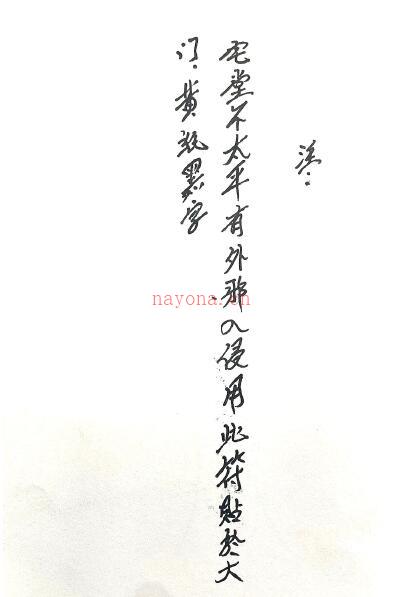 注：
宅堂不太平有外邪入侵用此符贴於大
门．黄纸墨字
nayona.cn